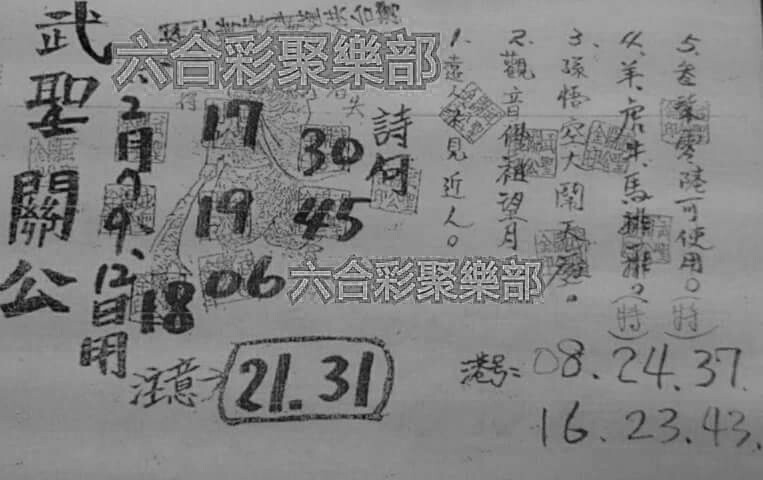 六合彩聚樂部
武聖關公
2月7、9、12日用
17
30
19
45
06
18
詩句
1. 遠人不見近人。
2. 觀音佛祖望月
3. 孫悟空大鬧天宮。
4. 羊、虎、牛、馬 (特)
5. 叁肆零陸可使用。(特)
六合彩聚樂部
注意
21.31
港号: 08.24.37.
16.23.43.